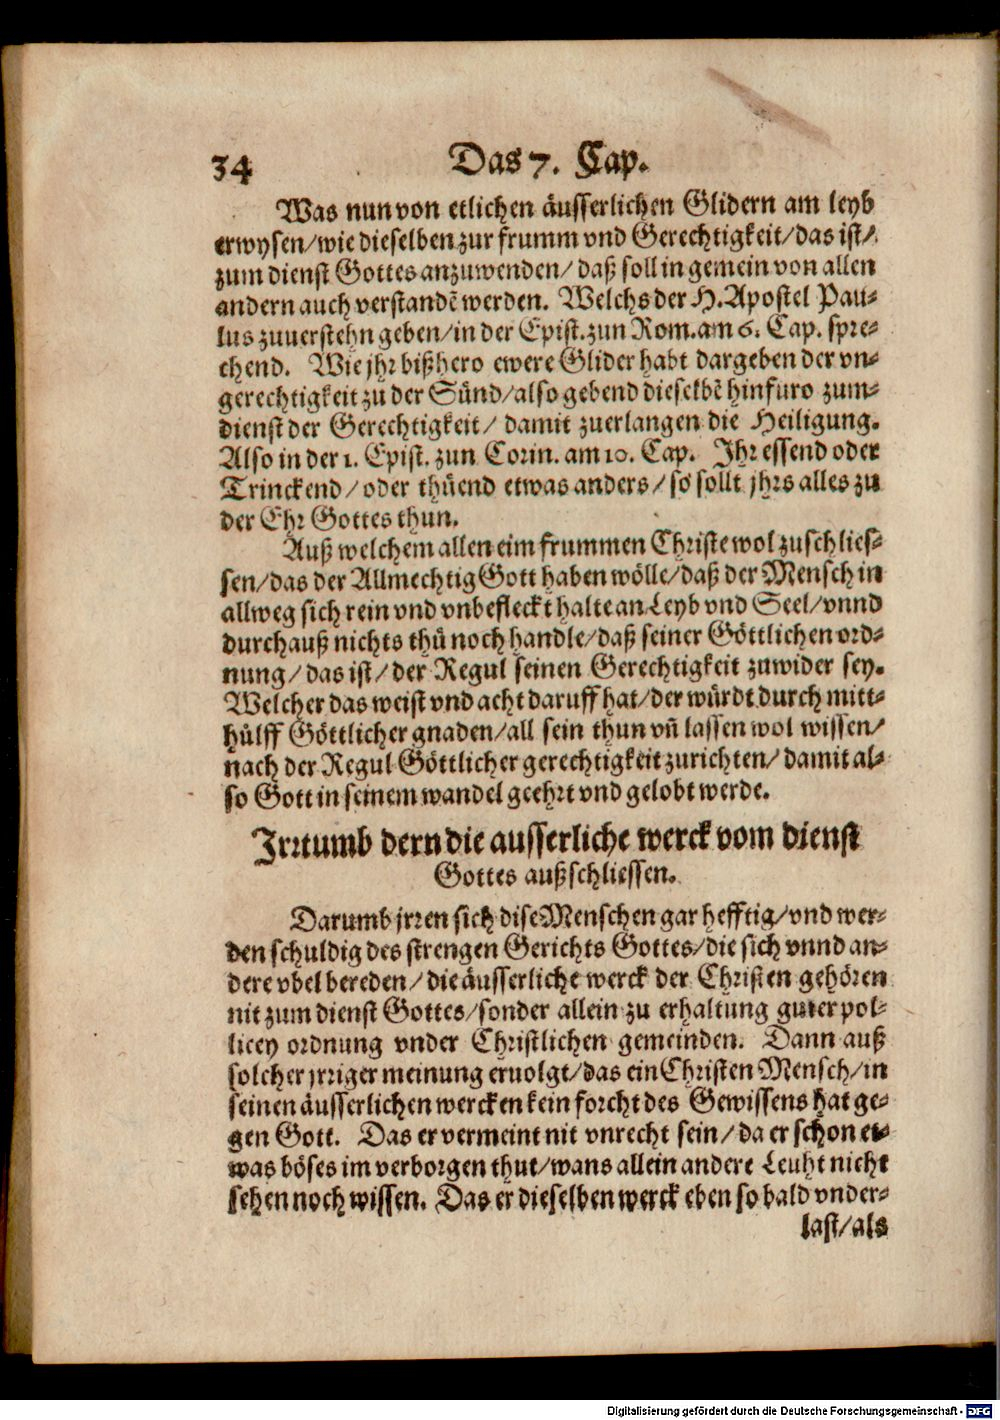 34 Das 7. Cap.
Was nun von etlichen äusserlichen Glidern am leyb
erwysen/wie dieselben zur frumm vnd Gerechtigkeit/das ist/
zum dienst Gottes anzuwenden/daß soll in gemein von allen
andern auch verstandē werden. Welchs der H. Apostel Pau-
lus zuuerstehn geben/in der Epist. zun Rom. am 6. Cap. spre-
chend. Wie jhr bißhero ewere Glider habt dargeben der vn-
gerechtigkeit zu der Sünd/also gebend dieselbē hinfuro zum-
dienst der Gerechtigkeit/ damit zuerlangen die Heiligung.
Also in der 1. Epist. zun Corin. am 10. Cap. Ihr essend oder
Trinckend/oder thüend etwas anders/so sollt jhrs alles zu
der Ehr Gottes thun.
Auß welchem allen eim frummen Christe wol zuschlies-
sen/das der Allmechtig Gott haben wölle/daß der Mensch in
allweg sich rein vnd vnbefleckt halte an Leyb vnd Seel/vnnd
durchauß nichts thü noch handle/daß seiner Göttlichen ord-
nung/das ist/der Regul seinen Gerechtigkeit zuwider sey.
Welcher das weist vnd acht daruff hat/der würdt durch mitt-
hülff Göttlicher gnaden/all sein thun vñ lassen wol wissen/
nach der Regul Göttlicher gerechtigkeit zurichten/damit al-
so Gott in seinem wandel geehrt vnd gelobt werde.
Irrtumb dern die ausserliche werck vom dienst
Gottes außschliessen.
Darumb jrren sich dise Menschen gar hefftig/vnd wer-
den schuldig des strengen Gerichts Gottes/die sich vnnd an-
dere vbel bereden/die äusserliche werck der Christen gehören
nit zum dienst Gottes/sonder allein zu erhaltung guter pol-
licey ordnung vnder Christlichen gemeinden. Dann auß
solcher jrriger meinung eruolgt/das ein Christen Mensch/in
seinen äusserlichen wercken kein forcht des Gewissens hat ge-
gen Gott. Das er vermeint nit vnrecht sein/da er schon et-
was böses im verborgen thut/wans allein andere Leuht nicht
sehen noch wissen. Das er dieselben werck eben so bald vnder-
last/als
Digitalisierung gefördert durch die Deutsche Forschungsgemeinschaft - DFG